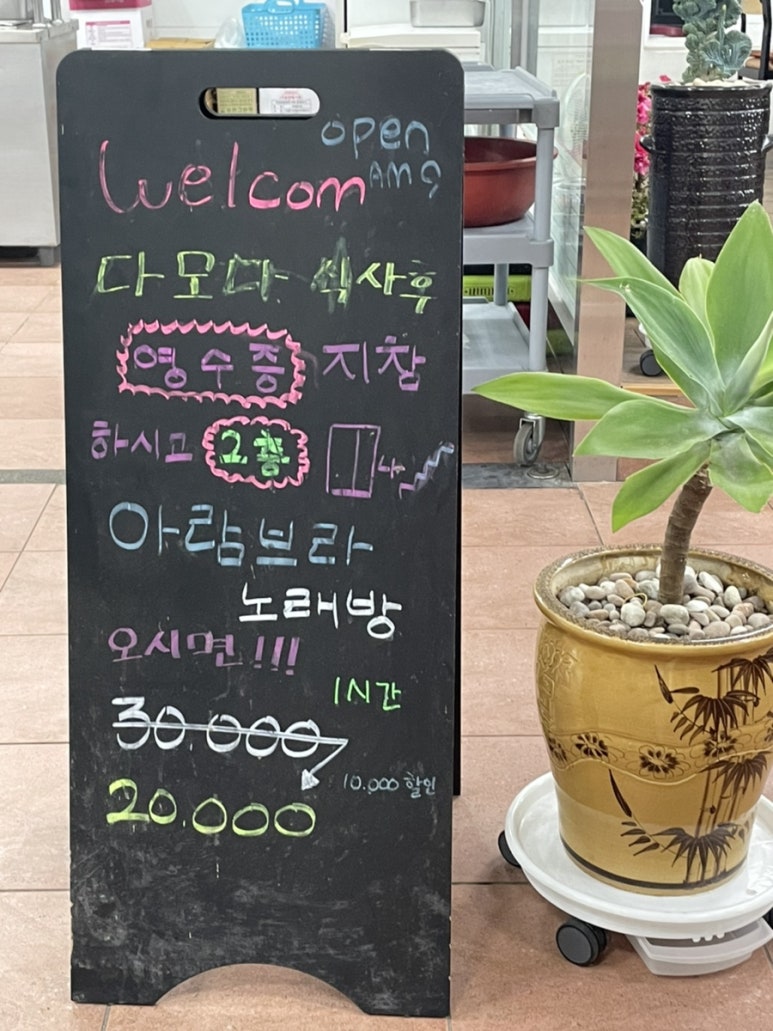 open
AM 9
welcom
다모다 식사후
영수증 지참
하시고 2층
아람브라
노래방
오시면!!!
1시간
30.000
10.000 할인
20.000